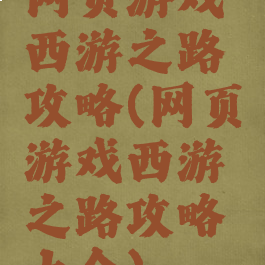 网页游戏
西游之路
攻略(网页
游戏西游
之路攻略
大全)